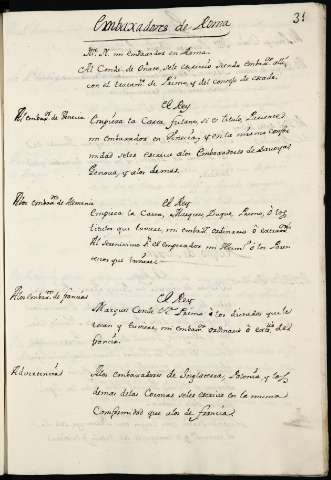 31
Embaxadores de Roma
Mi embaxador en Roma.
Al Conde de Oñate se le escrivio siendo embax.or alli,
con el tratam.to de Primo, y del consejo de estado.
El Rey
Al embax.or de Venecia
Empieza la Carta, fulano, si es titulo, Pariente
mi embaxador en Venecia, y en la misma confor
midad se les escrive a los Embaxadores de Saboya
Genova, y a los demas.
A los embax.res de Alemania
El Rey
Empieza la Carta, Marques, Duque, Primo, ò los
titulos que tuviere, mi embax.or ordinario ò extraor.o
Al Serenisimo S.r el emperador mi Herm.o ò los Paren
tescos que tuviere
A los embax.res de francia
El Rey
Marques Conde Primo ò los dictados que le
tocan y tuviere, mi embax.or ordinario ò ext.o de
francia.
Advertencia
A los embaxadores de Inglaterra, Polonia, y los
demas de las Coronas se les escrive en la misma
Conformidad que a los de francia.